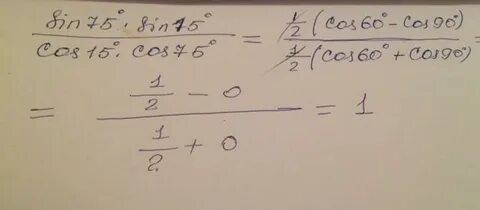 sin75°·sin15° / cos15°·cos75° = 1/2 (cos60° - cos90°) / 1/2 (cos60° + cos90°) =
= 1/2 - 0 / 1/2 + 0 = 1